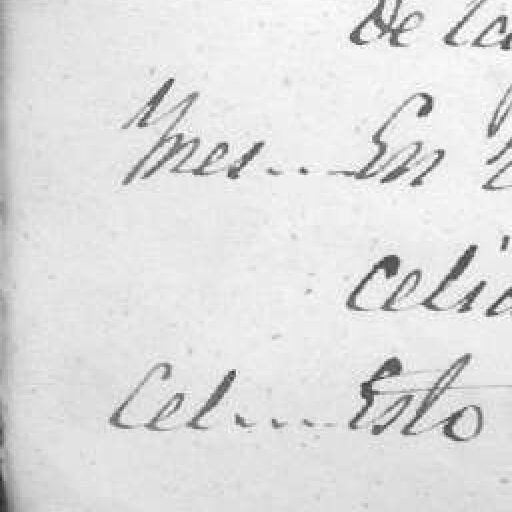 De la
Ynes....En
celi
Cel....Esto